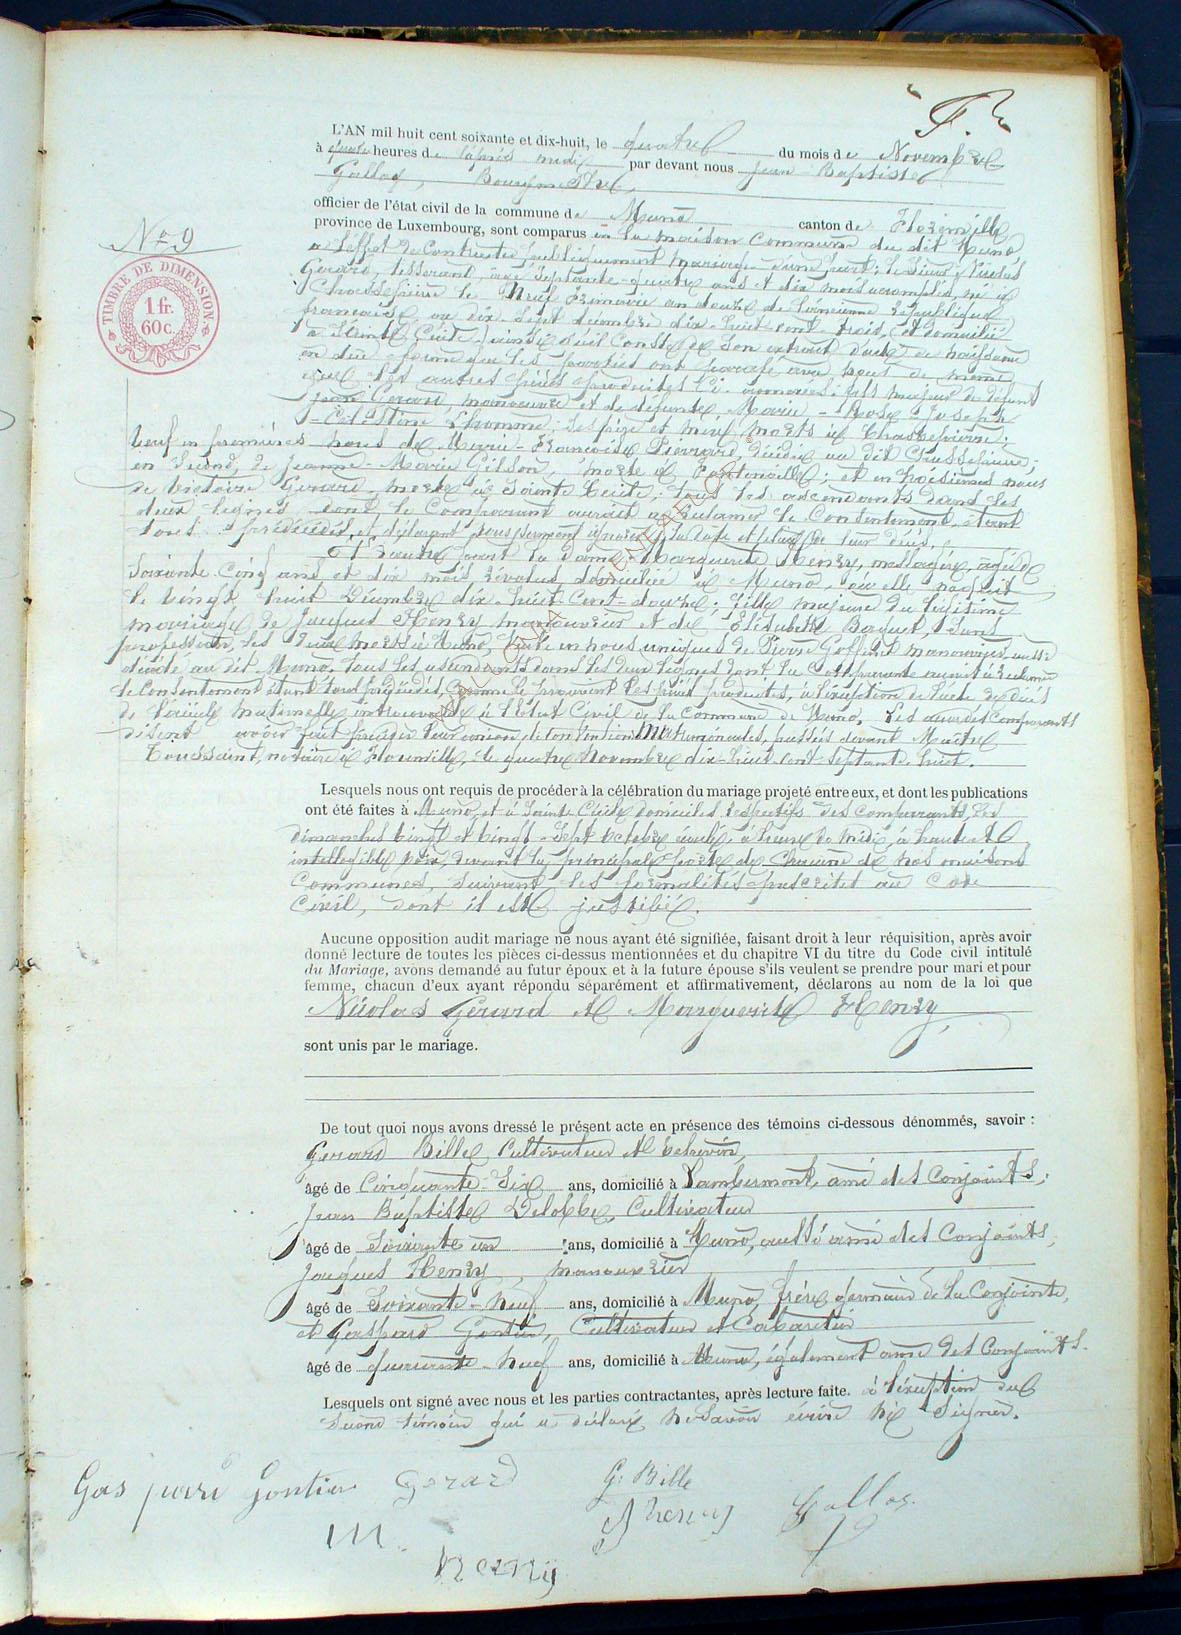 F.
L'AN mil huit cent soixante et dix-huit, le quatre du mois de Novembre
à quatre heures de l'après midi par devant nous Jean-Baptiste
Gallas, Bourgmestre,
officier de l'état civil de la commune de Muno canton de Florenville
province de Luxembourg, sont comparus en la maison Commune du dit Muno,
No 9
TIMBRE DE DIMENSION
1 fr.
60 c.
à l'effet de Contracter publiquement mariage d'une part: le Sieur Nicolas
Gerard, tisserand, âgé septante-quatre ans et dix mois accomplis, né à
Chassepierre le Neuf Frimaire an douze de l'ancienne République
française, au dix-sept décembre dix-huit cent trois, et domicilié
à Sainte Cécile, ainsi qu'il Conste de son extrait d'acte de naissance
en due forme que les parties ont paraphé avec nous de même
que les autres pièces produites ci-annexées: fils majeur de défunt
Jean Gerard, manoeuvre et de défunte Marie-Rose-Joseph
Célestine Lhomme; ses père et mère morts à Chassepierre;
Veuf en premières noces de Marie-Françoise Pierrard, décédée au dit Chassepierre;
en second, de Jeanne-Marie Gilson, morte à Fontenoille; et en troisièmes noces
de Victoire Gerard, morte à Sainte Cécile; tous les ascendants dans les
deux lignes dont le Comparant aurait à réclamer le Consentement, étant
tous prédécédés, et déclarant sous serment ignorer la date et le lieu de leur décès.
Et d'autre part la dame Marguerite Henry, ménagère, âgée de
Soixante-Cinq ans et dix mois révolus, domiciliée à Muno, où elle naquit
le vingt huit Décembre dix-huit-Cent-douze; fille majeure du légitime
mariage de Jacques Henry manouvrier et de Elisabeth Baquet, sans
profession, les deux morts à Muno, Veuve en noces uniques de Pierre Goffinet manouvrier, aussi
décédé au dit Muno. Tous les ascendants dans les deux lignes dont la Comparante aurait à réclamer
le Consentement étant tous prédécédés, Comme le prouvent les pièces produites, à l'exception de l'acte de décès
de l'aïeule maternelle introuvable à l'Etat Civil de la Commune de Muno. Les deux dits Comparants
disent avoir fait précéder leur union de Conventions Matrimoniales, passées devant Maître
Toussaint, notaire à Florenville, le quatre Novembre dix-huit-cent-septante-huit.
Lesquels nous ont requis de procéder à la célébration du mariage projeté entre eux, et dont les publications
ont été faites à Muno, et à Sainte Cécile domiciles respectifs des Comparants, les
dimanches vingt et vingt-sept octobre écoulé, à l'heure de midi, à haute et
intelligible voix, devant la principale porte de chacune de nos maisons
Communes, suivant les formalités prescrites au Code
Civil, dont il est justifié.
Aucune opposition audit mariage ne nous ayant été signifiée, faisant droit à leur réquisition, après avoir
donné lecture de toutes les pièces ci-dessus mentionnées et du chapitre VI du titre du Code civil intitulé
du Mariage, avons demandé au futur époux et à la future épouse s'ils veulent se prendre pour mari et pour
femme, chacun d'eux ayant répondu séparément et affirmativement, déclarons au nom de la loi que
Nicolas Gerard et Marguerite Henry
sont unis par le mariage.
De tout quoi nous avons dressé le présent acte en présence des témoins ci-dessous dénommés, savoir :
Gerard Bille Cultivateur et Echevin,
âgé de Cinquante-Six ans, domicilié à Lambermont, ami des Conjoints;
Jean Baptiste Delobbe, Cultivateur
âgé de Soixante un ans, domicilié à Muno, aussi ami des Conjoints,
Jacques Henry, manouvrier
âgé de Soixante-Neuf ans, domicilié à Muno, frère germain de la Conjointe,
et Gaspard Gontier, Cultivateur et Cabaretier
âgé de quarante-neuf ans, domicilié à Muno, également ami des Conjoints.
Lesquels ont signé avec nous et les parties contractantes, après lecture faite. à l'exception du
second témoin qui a déclaré ne savoir écrire ni signer.
Gaspard Gontier Gerard G: Bille
J henry Gallas.
m. henry